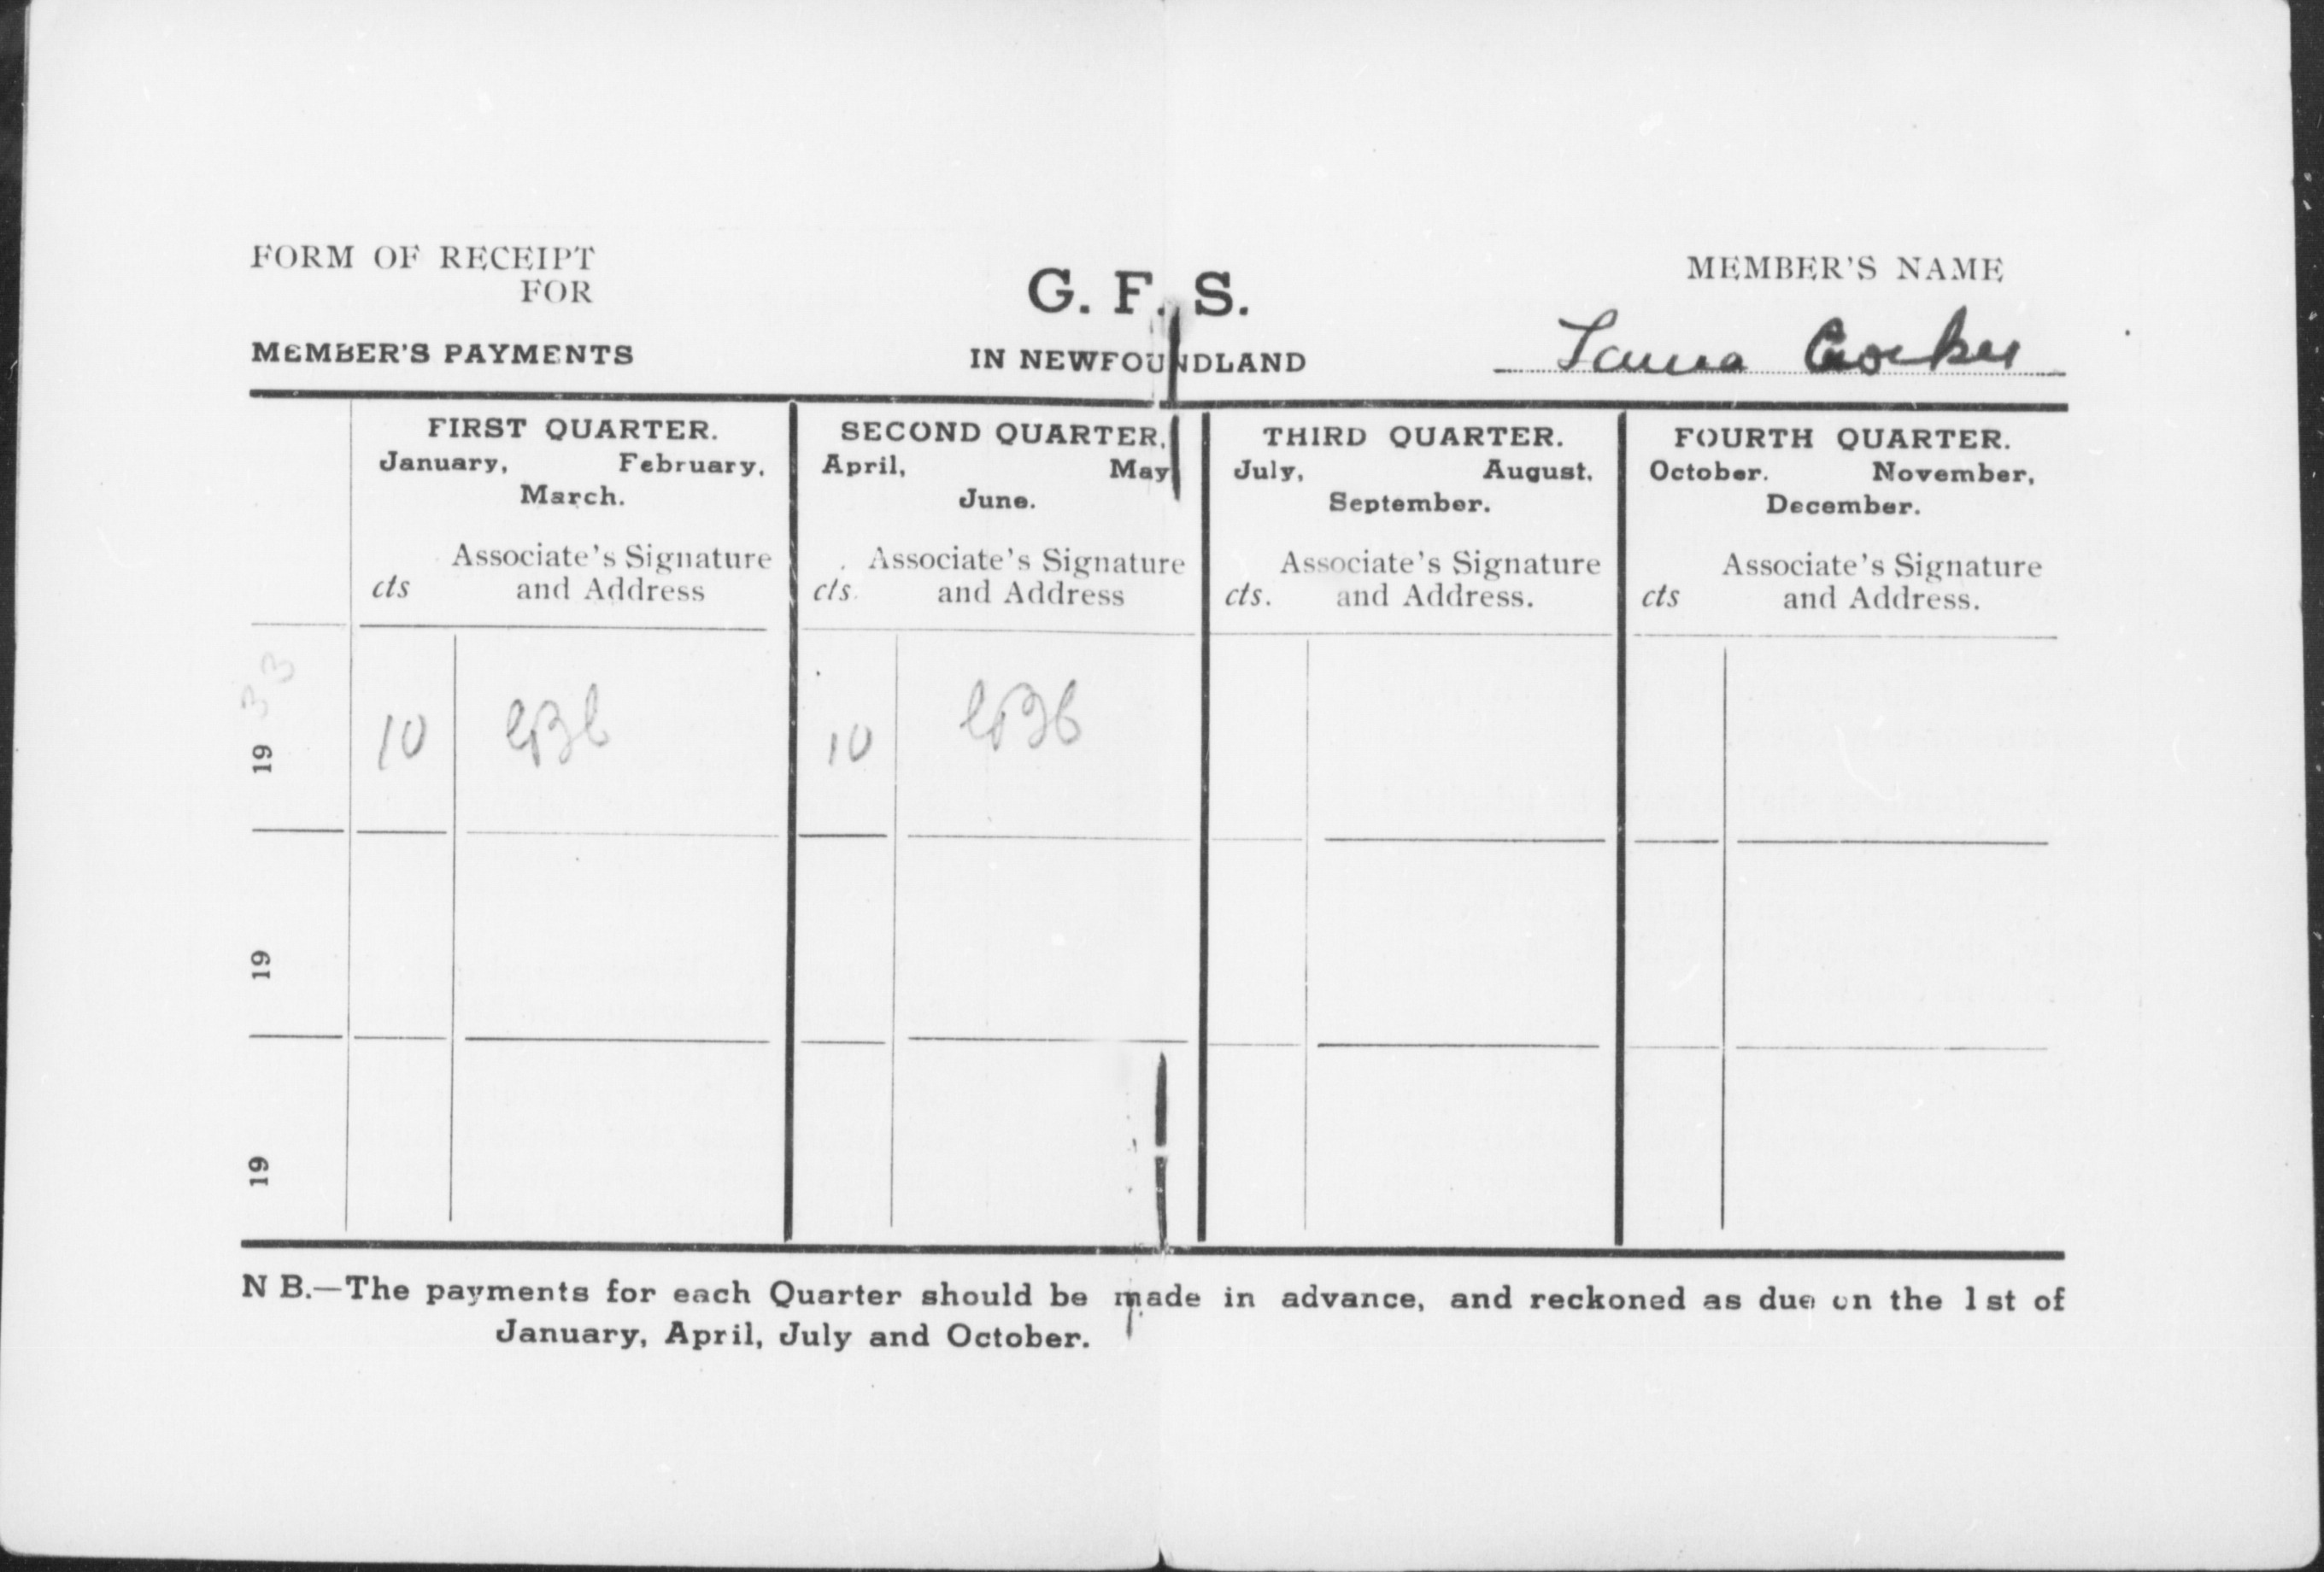 FORM OF RECEIPT
FOR
MEMBER'S PAYMENTS
G. F. S.
IN NEWFOUNDLAND
MEMBER'S NAME
Crocker
FIRST QUARTER.
January, February,
March.
cts Associate's Signature
and Address
SECOND QUARTER,
April, May
June.
cts. Associate's Signature
and Address
THIRD QUARTER.
July, August.
September.
cts. Associate's Signature
and Address.
FOURTH QUARTER.
October. November,
December.
cts Associate's Signature
and Address.
1933
10
10
19
19
N B.—The payments for each Quarter should be made in advance, and reckoned as due on the 1st of
January, April, July and October.